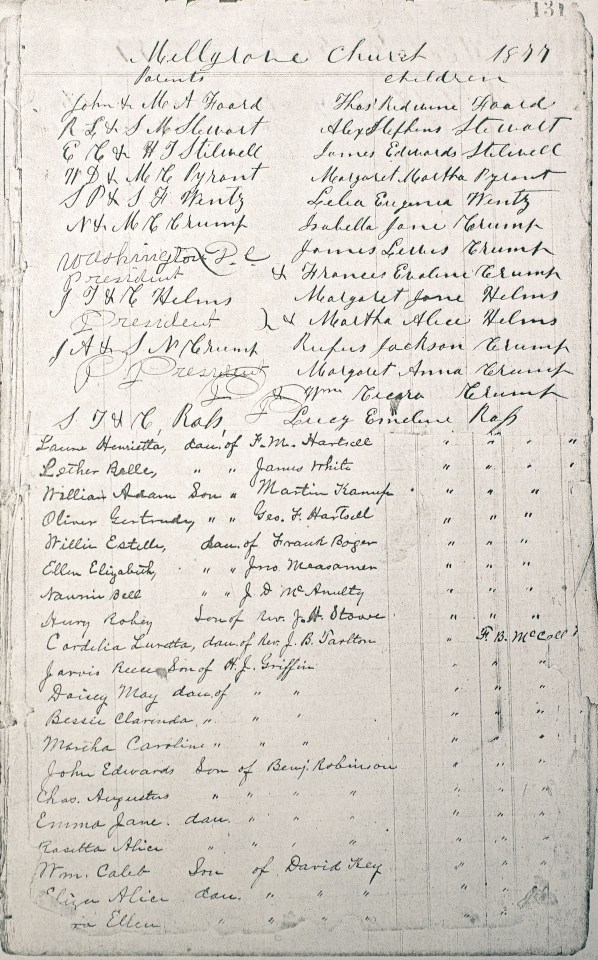 131
Mellgrove Church 1877
Parents Children
John & M A Foard Thos Redwine Foard
R L & S M Stewart Alex Stephens Stewart
E C & H J Stilwell James Edwards Stilwell
W D & M C Pyrant Margaret Martha Pyrant
S P & S F Wentz Lelia Eugenia Wentz
N & M C Crump Isabella Jane Crump
Washington D.C James Lewis Crump
President & Frances Evoline Crump
J T & C Helms Margaret Jane Helms
President & Martha Alice Helms
J A & S N Crump Rufus Jackson Crump
President Margaret Anna Crump
& Wm Cicero Crump
S T & C, Ross, Lucy Emeline Ross
Laura Henrietta, dau. of F. M. Hartsell " " " "
Lether Belle, " " James White " " " "
William Adam Son " Martin " " "
Oliver Gertrude, " " Geo. F. Hartsell " " "
Willie Estelle, dau. of Frank Boger " " "
Ellen Elizabeth, " " Jno. Measamer " " "
Nannie Bell " " J. D. McAnulty " " "
Henry Robey Son of Rev. J. H. Stowe " " "
Cordelia Luretta, dau. of Rev. J. B. Tarlton " F. B. McCall
Jarvis Reece Son of H. J. Griffin " " "
Daisey May dau. of " " " " "
Bessie Clarinda, " " " " " "
Martha Caroline " " " " " "
John Edwards Son of Benj. Robinson " " "
Chas. Augustus " " " " " " "
Emma Jane. dau. " " " " " "
Rosetta Alice " " " " " " "
Wm. Caleb Son of David Key " " "
Eliza Alice dau. " " " " " "
Ellen " " " " " " "